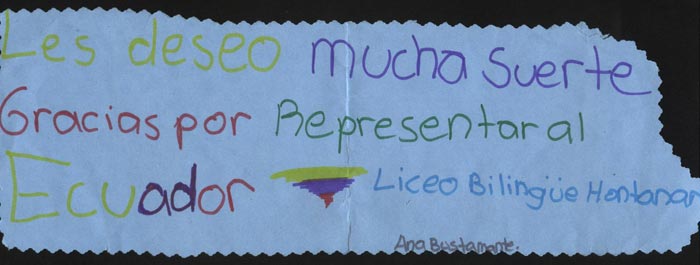 Les deseo mucha suerte
Gracias por Representar al
Ecuador Liceo Bilingüe Hontanar
Ana Bustamante.